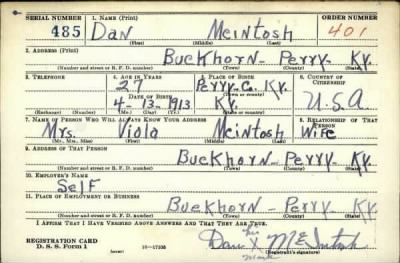 SERIAL NUMBER 1. NAME (Print) ORDER NUMBER
485 Dan McIntosh 401
(First) (Middle) (Last)
2. ADDRESS (Print)
Buckhorn- Perry- Ky.
(Number and street or R. F. D. number) (Town) (County) (State)
3. TELEPHONE 4. AGE IN YEARS 5. PLACE OF BIRTH 6. COUNTRY OF CITIZENSHIP
27 Perry-Co. Ky.
DATE OF BIRTH (Town or county)
4-13-1913 Ky. U.S.A
(Exchange) (Number) (Mo.) (Day) (Yr.) (State or country)
7. NAME OF PERSON WHO WILL ALWAYS KNOW YOUR ADDRESS 8. RELATIONSHIP OF THAT PERSON
Mrs. Viola McIntosh Wife
(Mr., Mrs., Miss) (First) (Middle) (Last)
9. ADDRESS OF THAT PERSON
Buckhorn- Perry- Ky.
(Number and street or R. F. D. number) (Town) (County) (State)
10. EMPLOYER'S NAME
Self
11. PLACE OF EMPLOYMENT OR BUSINESS
Buckhorn- Perry- Ky.
(Number and street or R. F. D. number) (Town) (County) (State)
I AFFIRM THAT I HAVE VERIFIED ABOVE ANSWERS AND THAT THEY ARE TRUE.
his
REGISTRATION CARD Dan X McIntosh
D. S. S. Form 1 16-17105 mark (Registrant's signature)